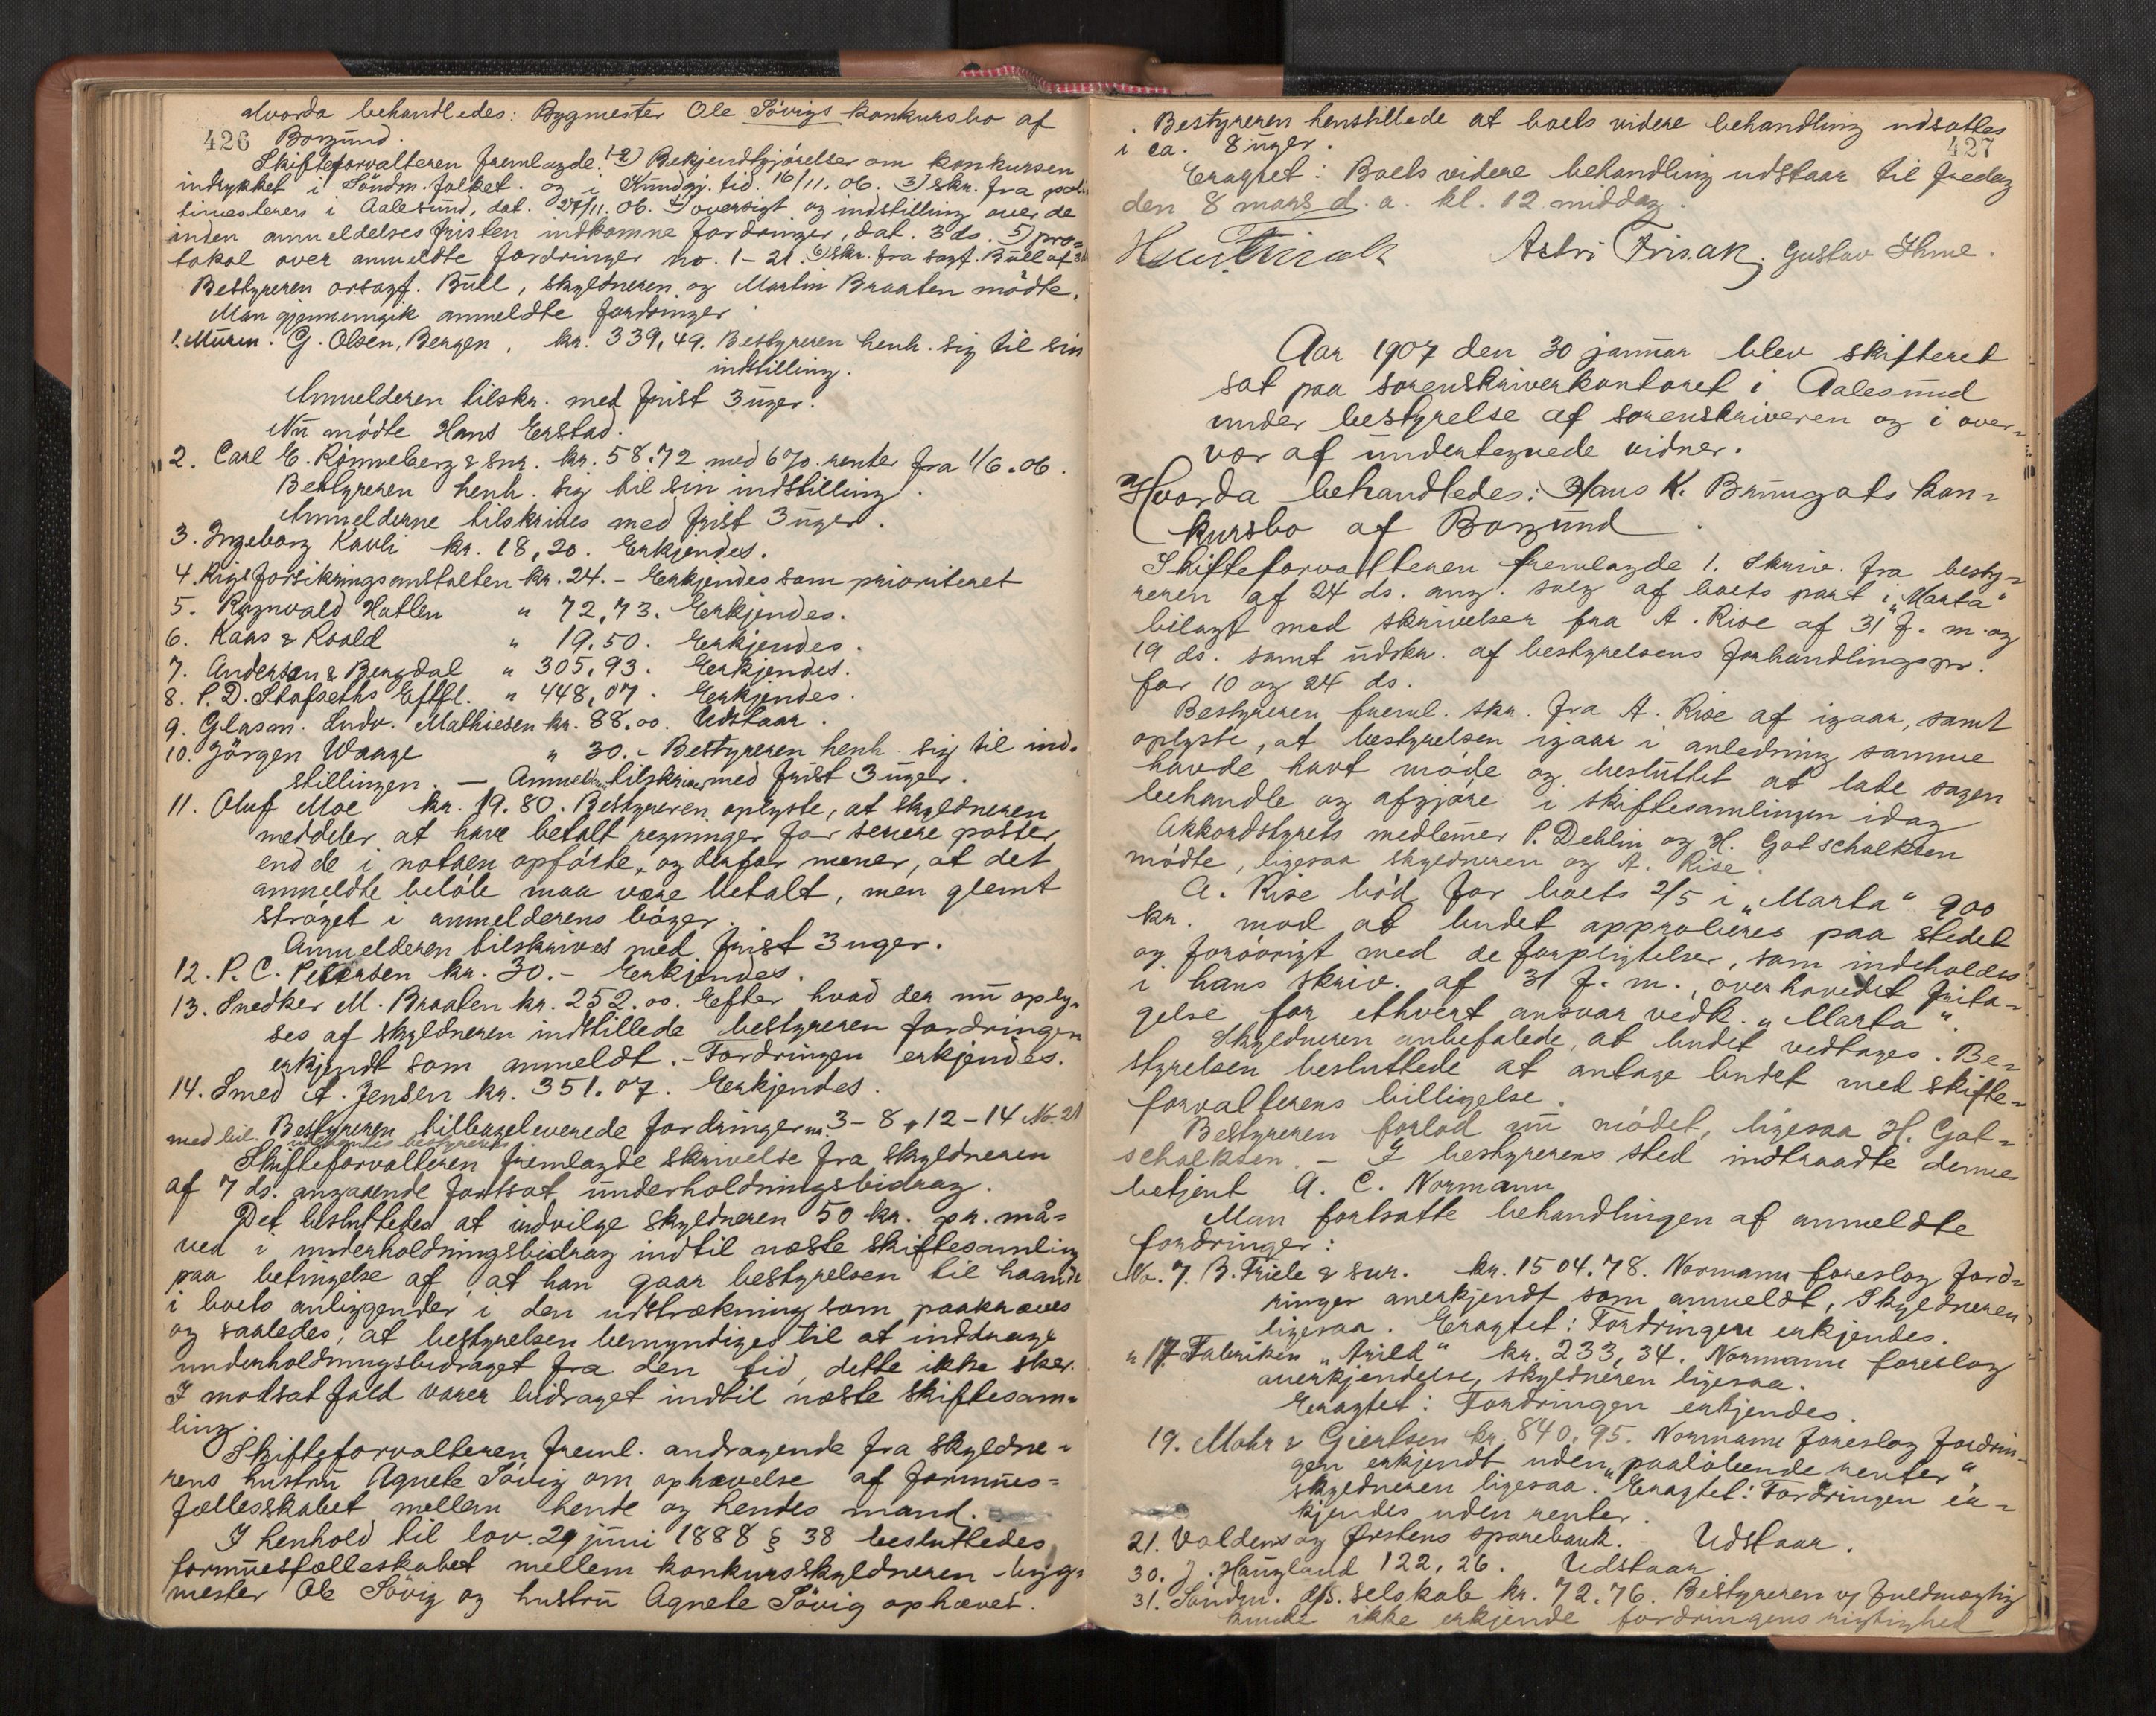 Hvorda behandledes: Bygmester Ole Sövigs konkursbo af
426 Borgund.
Skifteforvalteren fremlagde: 1-2) Bekjendtgjörelser om konkursen
indrykket i Söndm. folket. og i Kundgj. tid. 16/11. 06. 3) skr. fra poli
timesteren i Aalesund, dat. 27/11. 06. 4) oversigt og indstilling over de
inden anmeldelsesfristen indkomne fordringer, dat. 3 ds. 5) pro-
tokol over anmeldte fordringer no. 1-21. 6) skr. fra sagf. Bull af
Bestyreren orsagf. Bull, skyldneren og Martin Braaten mödte.
Man gjennemgik anmeldte fordringer
1. Murm. G. Olsen, Bergen, kr. 339,49. Bestyreren henh. sig til sin
indstilling.
Anmelderen tilskr. med frist 3 uger.
Nu mödte Hans Erstad.
" 2. Carl E. Rönneberg & snr. kr. 58.72 med 6% renter fra 1/6.06.
Bestyreren henh. sig til sin indstilling.
Anmelderne tilskrives med frist 3 uger.
3. Ingeborg Kavli kr. 18,20. Erkjendes.
4. Rigsforsikringsanstalten kr. 24.- Erkjendes som prioriteret
5. Ragnvald Hatlen " 72,73. Erkjendes.
6. Kars & Roald " 19.50. Erkjendes.
7. Andersen & Bergdal " 305,93. Erkjendes.
8. P. D. Stafseths Eftfl. " 448,07. Erkjendes.
9. Glasm. Ludv. Mathiesen kr. 88.00. Udstaar.
10. Jörgen Waage " 30.- Bestyreren henh. sig til ind-
stillingen. - Anmelderen tilskrives med frist 3 uger.
11. Oluf Moe kr. 19.80. Bestyreren oplyste, at skyldneren
meddeler at have betalt regninger for senere poster
end de i notaen opförte, og derfor mener, at det
anmeldte belöb maa være betalt, men glemt
ströget i anmelderens böger.
Anmelderen tilskrives med frist 3 uger.
12. P. C. Petersen kr. 30.- Erkjendes.
13. Snedker M. Braaten kr. 252.00. Efter hvad der nu oply-
ses af skyldneren indstillede bestyreren fordringen
erkjendt som anmeldt. - Fordringen erkjendes.
14. Smed A. Jensen kr. 351.07. Erkjendes.
Bestyreren tilbageleverede fordringer nr. 3-8, 12-14 No. 21
med bil. bestyreren
Skifteforvalteren fremlagde skrivelse fra skyldneren
af 7 ds. angaaende fortsat underholdningsbidrag.
Det besluttedes at indvilge skyldneren 50 kr. pr. må-
ned i underholdningsbidrag indtil næste skiftesamling
paa betingelse af, at han gaar bestyrelsen til haande
i boets anliggender i den udstrækning som paakræves
og saaledes, at bestyrelsen bemyndiges til at inddrage
underholdningsbidraget fra den tid, dette ikke sker.
I modsat fald varer bidraget indtil næste skiftesam-
ling.
Skifteforvalteren freml. andragende fra skyldne-
rens hustru Agnete Sövig om ophævelse af formues-
fællesskabet mellem hende og hendes mand.
I henhold til lov. 29 juni 1888 § 38 besluttedes
formuesfælleskabet mellem konkursskyldneren byg-
mester Ole Sövig og hustru Agnete Sövig ophævet.
Bestyreren henstillede at boets videre behandling udsattes
i ca. 8 uger. 427
Eragtet: Boets videre behandling udstaar til fredag
den 8 mars d. a. kl. 12 middag.
Astri Frisak, Gustav Ihme.
Aar 1907 den 30 januar blev skifteret
sat paa sorenskriverkontoret i Aalesund
under bestyrelse af sorenskriveren og i over-
vær af undertegnede vidner.
Hvorda behandledes: Hans K. Brungots kon-
kursbo af Borgund.
Skifteforvalteren fremlagde 1. skriv. fra besty-
reren af 24 ds. ang. salg af boets part i "Marta"
bilagt med skrivelser fra A. Rise af 31 f. m. og
19 ds. samt udskr. af bestyrelsens forhandlingspr.
for 10 og 24 ds.
Bestyreren freml. skr. fra A. Rise af igaar, samt
oplyste, at bestyrelsen igaar i anledning samme
havde havt möde og besluttet at lade sagen
behandle og afgjøre i skiftesamlingen idag
Akkordstyrets medlemer P. Dehlin og H. Gotschalksen
mödte, ligesaa skyldneren og A. Rise.
A. Rise böd for boets 2/5 i "Marta" 900
kr. mod at budet approberes paa stedet
og forövrigt med de forpligtelser, som indeholdes
i hans skriv. af 31 f. m., overhovedet frita-
gelse for ethvert ansvar vedk. "Marta".
Skyldneren anbefalede, at budet vedtages. Be-
styrelsen besluttede at antage budet med skifte-
forvalterens billigelse.
Bestyreren forlod nu mödet, ligesaa H. Got-
schalksen. - I bestyrerens sted indtraadte dennes
betjent A. C. Normann
Man fortsatte behandlingen af anmeldte
fordringer:
No. 7. B. Friele & snr. kr. 1504.78. Normann foreslog ford-
ringen anerkjendt som anmeldt, Skyldneren
ligesaa. Eragtet: Fordringen erkjendes.
" 17. Fabriken "Arild" kr. 233,34. Normann foreslog
anerkjendelse, skyldneren ligesaa.
Eragtet: Fordringen erkjendes.
19. Mohr & Giertsen kr. 840.95. Normann foreslog fordrin-
gen erkjendt uden "paalöbende renter",
skyldneren ligesaa. Eragtet: Fordringen er-
kjendes uden renter.
21. Voldens og Ørstens sparebank. - Udstaar.
30. J. Haugland 122,26. Udstaar
31. Söndm. d/s. selskab kr. 72.76. Bestyreren v/ fuldmægtig
kunde ikke erkjende fordringens rigtighed